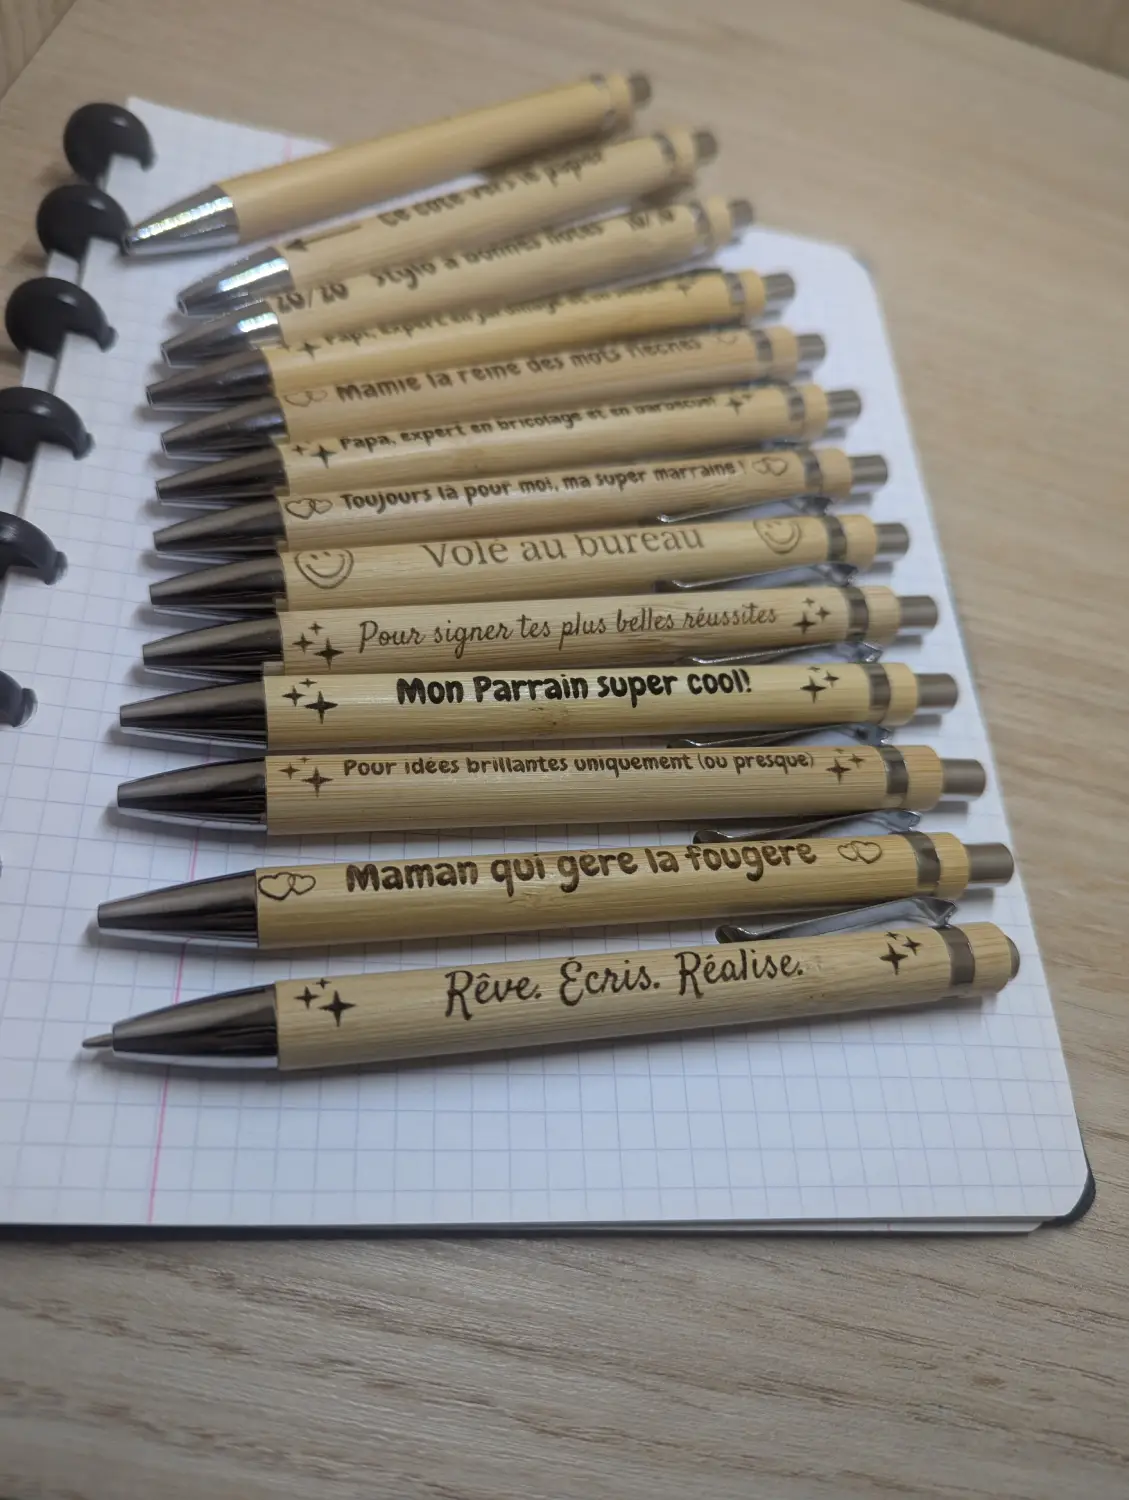 Ce côté vers le papier
20/20 Stylo à bonnes notes 20/20
Papi, expert en jardinage et en
Mamie la reine des mots fléchés
Papa, expert en bricolage et en barbecue!
Toujours là pour moi, ma super marraine!
Volé au bureau
Pour signer tes plus belles réussites
Mon Parrain super cool!
Pour idées brillantes uniquement (ou presque)
Maman qui gère la fougère
Rêve. Écris. Réalise.